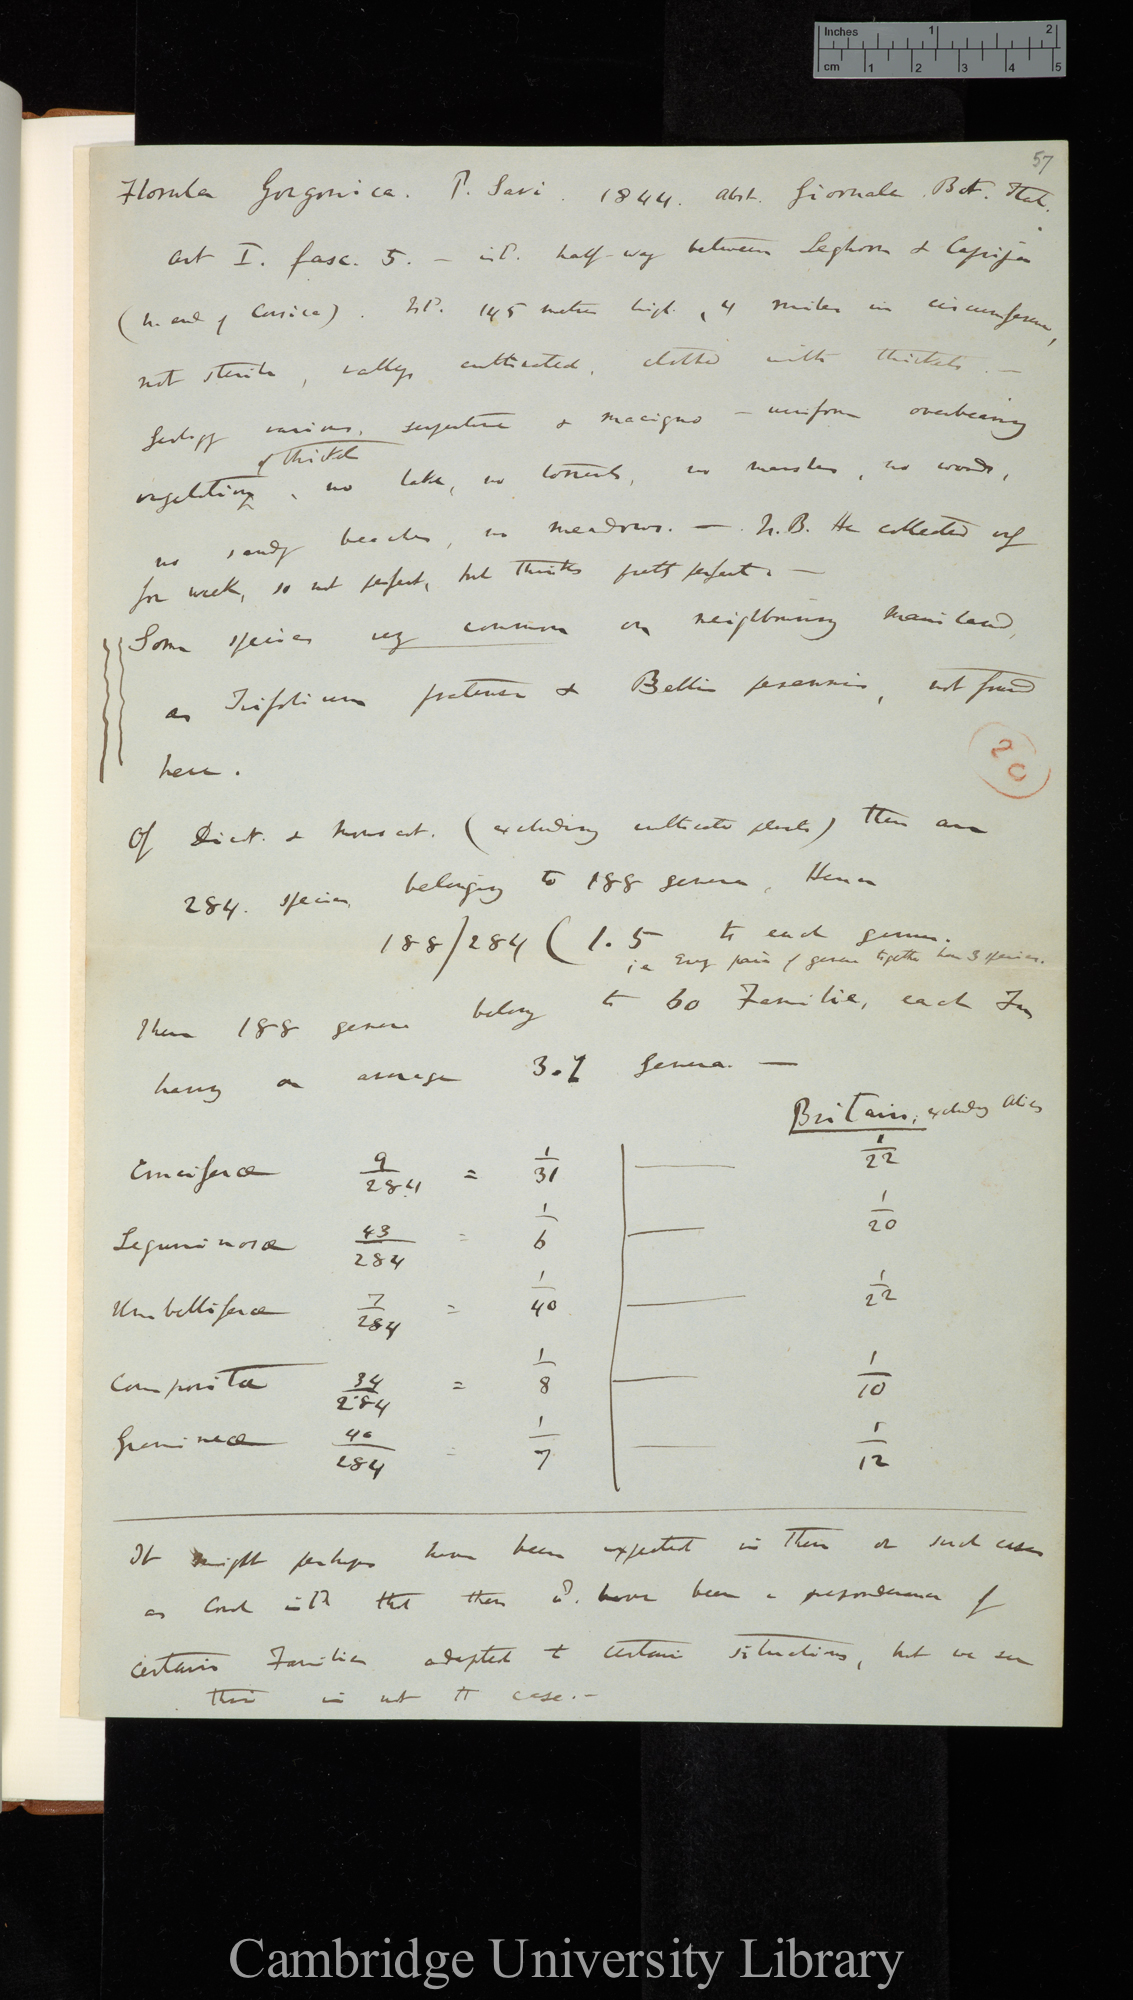 Inches 1 2
cm 1 2 3 4 5
57
Florula Gorgonica. P. Savi. 1844. abst. Giornale Bot. Ital.
art I. fasc. 5. — isld. half-way between Leghorn & Capraja
(N. end of Corsica). metres high, 4 miles in circumference,
not sterile, valleys cultivated, clothed with thickets. —
Geology various, serpentine & macigno — uniform overbearing
of thicket
vegetation, no lake, no torrents, no marshes, no woods,
no sandy beaches, no meadows. — N.B. He collected only
for week, so not perfect, but thinks pretty perfect. —
Some species very common on neighbouring mainland,
as Trifolium pratense & Bellis perennis, not found
here.
20
Of Dicot. & monocot. (excluding cultivated plants) there are
284. species belonging to 188 genera, Hence
188)284(1.5 to each genus.
i.e. Every pair of genera together have 3 species.
These 188 genera belong to 60 Familiæ, each Fam
having on average 3.1 Genera. —
Britain, excluding Alien
Cruciferæ 9/284 = 1/31 — 1/22
Leguminosæ 43/284 = 1/6 — 1/20
Umbelliferæ 7/284 = 1/40 — 1/22
Compositæ 34/284 = 1/8 — 1/10
Gramineæ 40/284 = 1/7 — 1/12
It might perhaps have been expected in these or such cases
as Coral islds that there wd. have been a preponderance of
certain Families adapted to certain situations, but we see
this is not the case. —
Cambridge University Library